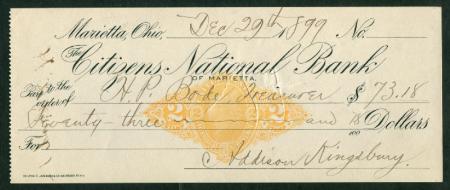 Marietta, Ohio, Dec 29th 1899 No.
The Citizens National Bank
OF MARIETTA,
Pay to the
order of H. P. Bode, Treasurer $ 73.18
Seventy-three and 18/100 Dollars
2 2
For
Addison Kingsbury.